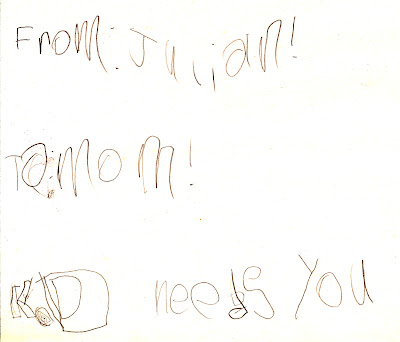 From: Julian!
To: mom!
KID needs you